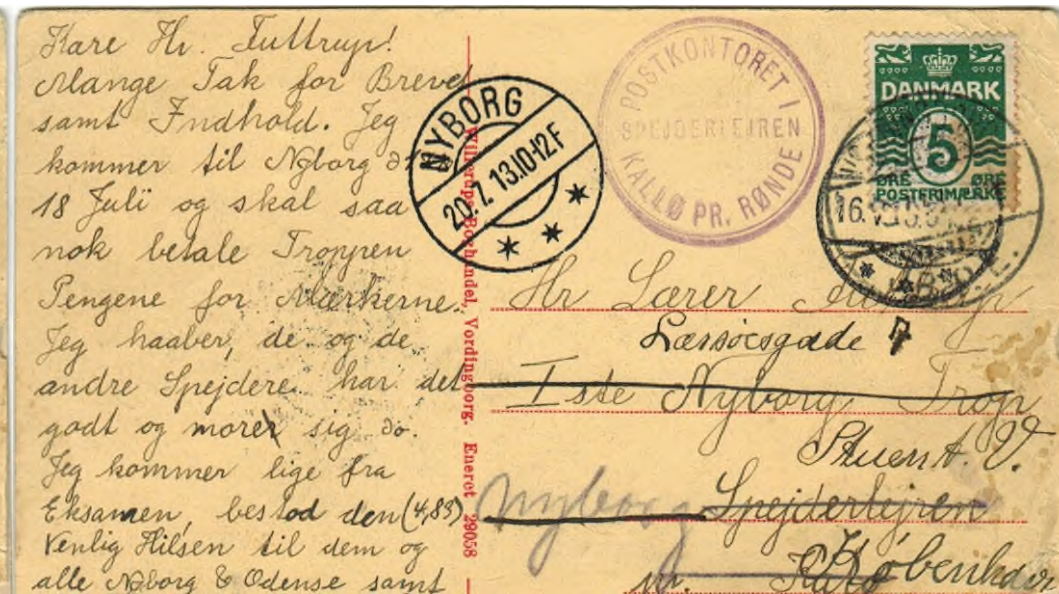 Kære Hr. Tuttrup!
Mange Tak for Brevet
samt Indhold. Jeg
kommer til Nyborg d.
18 Juli og skal saa
nok betale Troppen
Pengene for Mærkerne.
Jeg haaber, de og de
andre Spejdere har det
godt og morer sig do.
Jeg kommer lige fra
Eksamen, bestod den (4,83)
Venlig Hilsen til dem og
alle Nyborg & Odense samt
Vilhelm Boghandel, Vordingborg. Eneret 29058
NYBORG
20.7.13.10-12F
POSTKONTORET I
SPEJDERLEJREN
KALLØ PR. RØNDE
DANMARK
5
ØRE ØRE
POSTFRIMÆRKE
16.
Hr Lærer
Læssøesgade 7
Iste Nyborg Trop
Stuen t. V.
Nyborg Spejderlejren
København
pr.